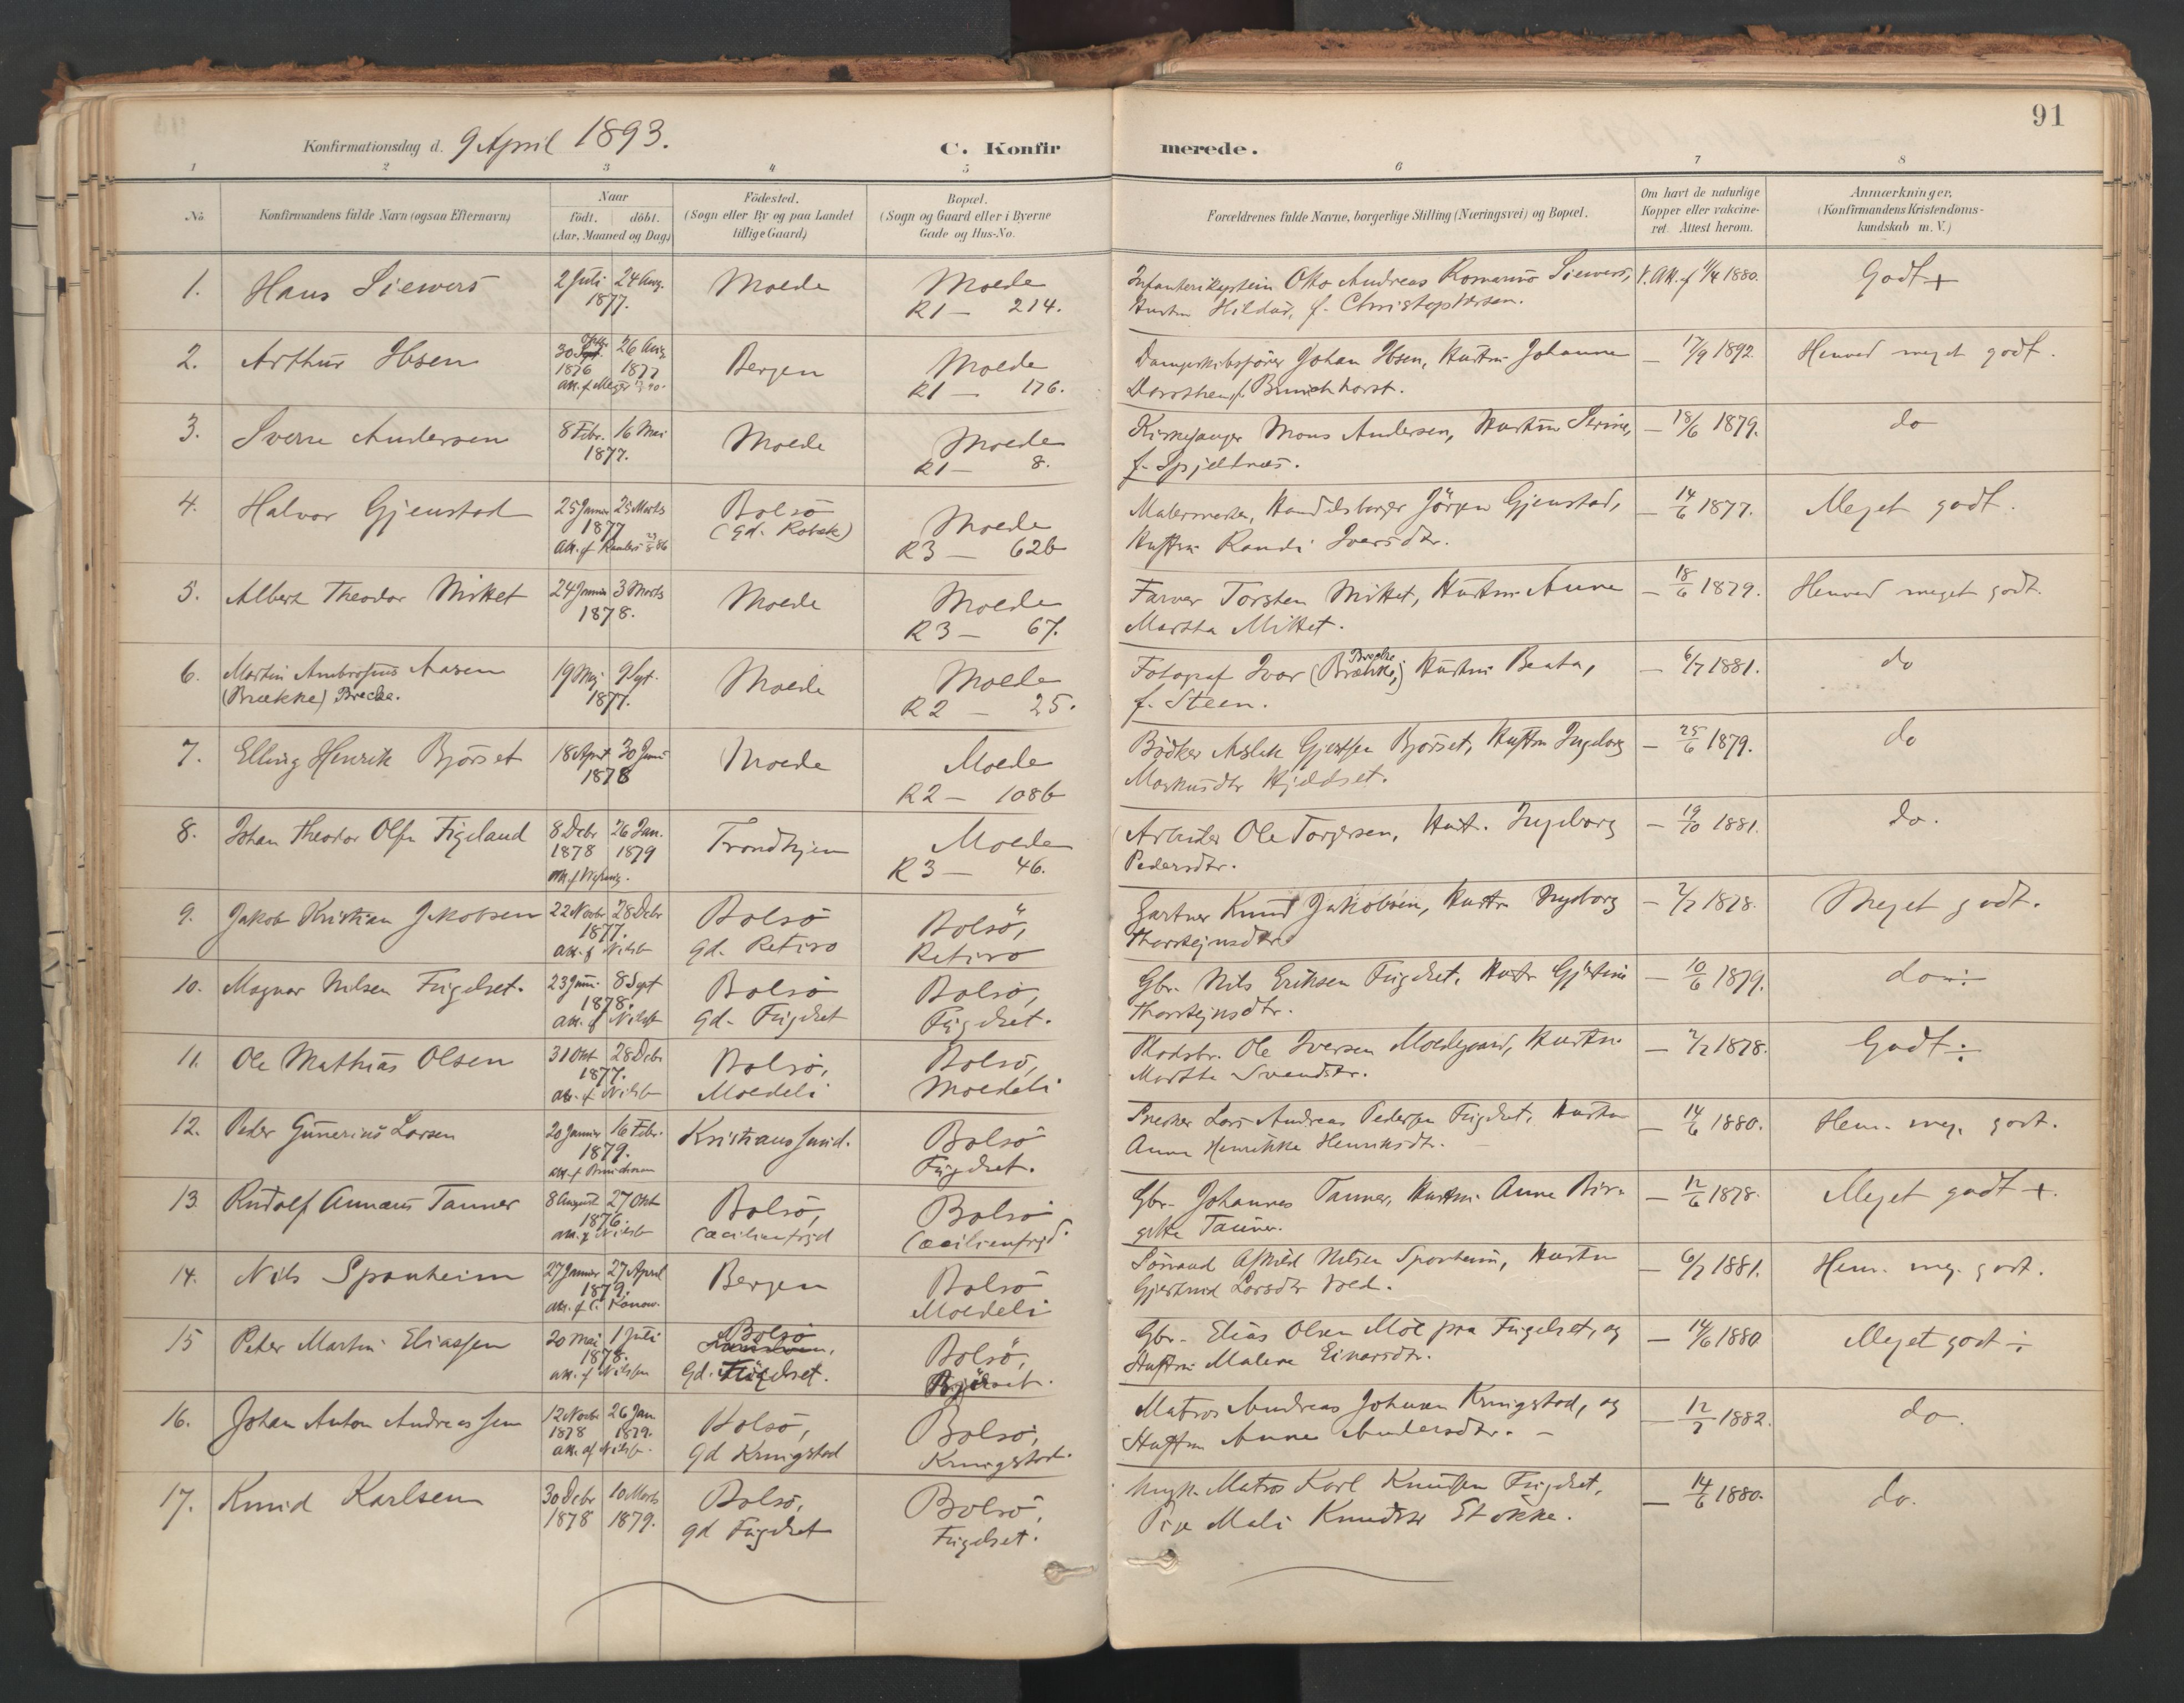 91
Konfirmationsdag d. 9 April 1893.
C. Konfirmerede.
1 2 3 4 5 6 7 8
No.
Konfirmandens fulde Navn (ogsaa Efternavn)
Naar
födt. döbt.
(Aar, Maaned og Dag)
Födested.
(Sogn eller By og paa Landet
tillige Gaard)
Bopæl.
(Sogn og Gaard eller i Byerne
Gade og Hus-No.
Forældrenes fulde Navne, borgerlige Stilling (Næringsvei) og Bopæl.
Om havt de naturlige
Kopper eller vakcine-
ret. Attest herom.
Anmærkninger.
(Konfirmandens Kristendoms-
kundskab m. V.)
1. Hans Siewers 2 Juli 24 Aug. Molde Molde Otto Andreas Romanus Siewers, 1880. Godt +
1877. R1 — 214. Hustru Hilda, f. Christophersen.
2. Arthur Ibsen 30 26 Aug Bergen Molde Dampskibsfører Johan Ibsen, Hustru Johanne — 17/9 1892 Henved meget godt.
1876 1877 R1 — 176. Dorothea f.
3. Sverre Andersen 8 Febr. 16 Mai Molde Molde Kirkesanger Mons Andersen, Hustru Serine, — 18/6 1879. do
1877. R1 — 8. f. Spjelknæs.
4. Halvor Gjenstad 25 Januar 25 Marts Bolsö Molde Malermester, Handelsborger Jörgen Gjenstad, — 14/6 1877. Meget godt.
1877 (Gd. Robæk) R3 — 62b Hustru Randi Iversdtr.
5. Albert Theodor Mittet 24 Januar 3 Marts Molde Molde Farver Torsten Mittet, Hustru Anne — 18/6 1879. Henved meget godt.
1878. R3 — 67. Martha Mittet.
6. Martin Ambrosius Aasen 19 Maj 9 Spt. Molde Molde Fotograf Ivar (Brække,) Brecke Hustru Beata, — 6/7 1881. do
(Brække) Brecke. 1877. R2 — 25. f. Steen.
7. Elling Henrik Björset 18 April 30 Juni Molde Molde Bödker Aslak Gjertsen Björset, Hustru Ingeborg — 25/6 1879. do
1878 R2 — 108b Markusdtr Hjeldset.
8. Johan Theodor Olsen Figeland 8 Debr 26 Jan. Trondhjem Molde Arbeider Ole Torgersen, Hustr. Ingeborg — 19/10 1881. do.
1878 1879 R3 — 46. Pedersdtr.
9. Jakob Kristian Jakobsen 22 Novbr 28 Debr Bolsö Bolsö, Gartner Knud Jakobsen, Hustru Ingeborg — 2/7 1878. Meget godt.
1877. Gd. Retiro Retiro Thorstejnsdtr.
att. f. Nilsen
10. Magnar Nilsen Fugelset. 23 Juni 8 Sept Bolsö Bolsö, Gbr. Nils Eriksen Fugelset, Hustr Gjertine — 10/6 1879. do ÷
1878. Gd. Fugelset Fugelset. Thorstejnsdtr.
att. f. Nilsen
11. Ole Mathias Olsen 31 Okt 28 Debr Bolsö, Bolsö, Pladsbr. Ole Iversen Moldegaard, Hustru — 2/7 1878. Godt ÷
1877. Moldeli Moldeli Martha Svendsdtr.
att. f. Nilsen
12. Peder Gunerius Larsen 20 Januar 16 Febr. Kristianssund. Bolsö Snedker Lars Andreas Pedersen Fugelset, Hustru — 14/6 1880. Henv. meg. godt.
1879. Fugelset. Anne Henrikke Henriksdtr.
13. Rudolf Annæus Tanner 8 August 27 Okt Bolsö, Bolsö Gbr. Johannes Tanner, Hustru Anne Bir- — 12/6 1878. Meget godt +.
1876. Cæcilienfryd Cæcilienfryd. gitte Tanner.
att. f. Nilsen
14. Nils Sponheim 27 Januar 27 April Bergen Bolsö Nilsen Sponheim, Hustru — 6/7 1881. Henv. meg. godt.
1879. Moldeli Gjertrud Larsdtr Vold.
att. f. C. Konow.
15 Peter Martin Eliassen 20 Mai 1 Juli Bolsö Bolsö, Gbr. Elias Olsen Moe paa Fugelset, og — 14/6 1880 Meget godt ÷
1878. Gd. Fugelset. Björset. Hustru Malene Einarsdtr.
att. f. Nilsen
16. Johan Anton Andreassen 12 Novbr 26 Jan Bolsö, Bolsö, Matros Andreas Johnsen Kringstad, og — 12/7 1882. do.
1878 1879. Gd Kringstad Kringstad. Hustru Anne Andersdtr. —
att. af Nilsen.
17. Knud Karlsen 30 Debr 10 Marts Bolsö, Bolsö, Ungk. Matros Karl Knudsen Fugelset, — 14/6 1880. do.
1878 1879. Gd Fugelset Fugelset. Pige Mali Knudsdtr Stokke.